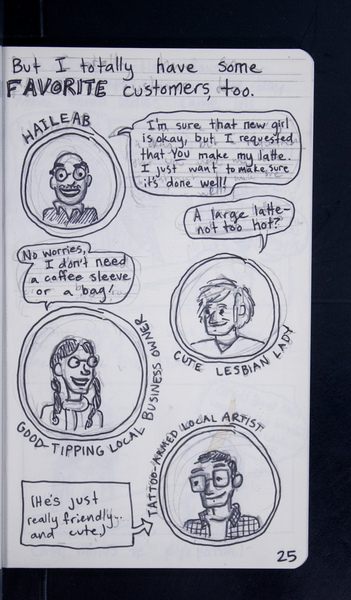 But I totally have some
FAVORITE customers, too.
HAILEAB
I'm sure that new girl
is okay, but I requested
that YOU make my latte.
I just want to make sure
it's done well!
A large latte–
not too hot?
CUTE LESBIAN LADY
No worries,
I don't need
a coffee sleeve
or a bag!
GOOD-TIPPING LOCAL BUSINESS OWNER
TATTOO-ARMED LOCAL ARTIST
(He's just
really friendly...
and cute.)
25